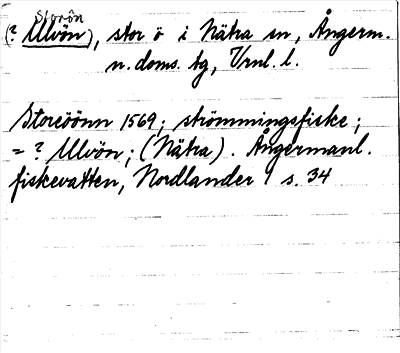 Storön
(? Ulvön), stor ö i Nätra sn, Ångerm.
n. doms. tg, Vrnl. l.
Storeöönn 1569; strömmingsfiske;
= ? Ulvön; (Nätra). Ångermanl.
fiskevatten, Nordlander s. 34